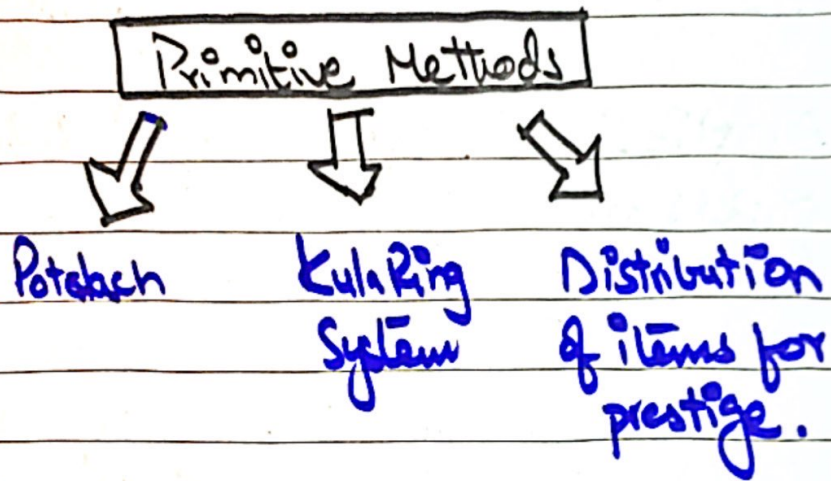 Primitive Methods
Potelach
Kula Ring
System
Distribution
of items for
prestige.